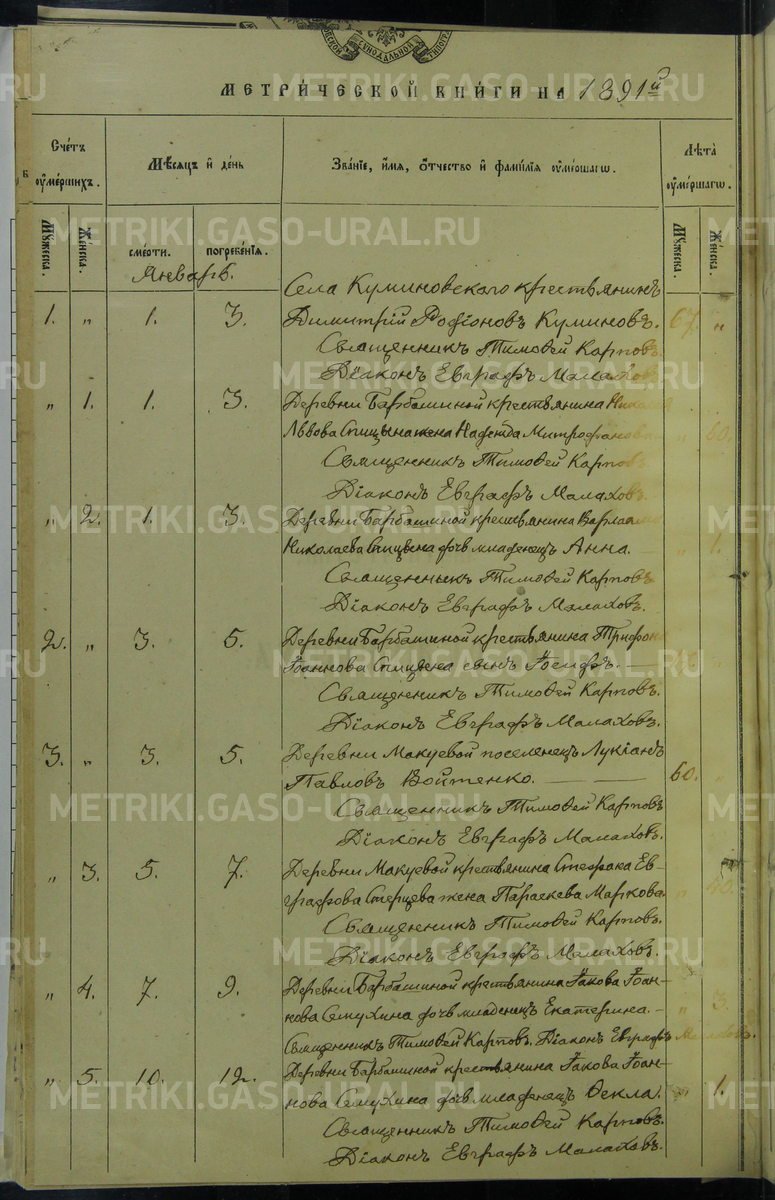 МЕТРИ́ЧЕСКОЙ КНИ́ГИ НА 1891й
Счетъ оу҆ме́ршихъ.
Мѣ́сяцъ и҆ де́нь
Зва́нїе, и҆́мя, ѻ҆́тчество и҆ фами́лїя оу҆ме́ршагѡ.
Лѣ́та оу҆ме́ршагѡ.
Му́жеска. Же́нска. сме́рти. погребе́нїя. Му́жеска. Же́нска.
Январь.
Села Куминовскаго крестьянинъ
1. " 1. 3. Димитрій Родіоновъ Куминовъ. 67. "
Священникъ Тимоѳей Карповъ.
Діаконъ Евграфъ Малахов
" 1. 1. 3. Деревни Барбашиной крестьянина
Львова Спицына жена Надежда Митрофанова " 60.
Священникъ Тимоѳей Карповъ
Діаконъ Евграфъ Малаховъ.
" 2. 1. 3. Деревни Барбашиной крестьянина
Николаева Спицына дочь младенецъ Анна. " 1.
Священникъ Тимоѳей Карповъ
Діаконъ Евграфъ Малаховъ.
2. " 3. 5. Деревни Барбашиной крестьянина Трифон
Іоаннова Спицына сынъ Іосифъ.
Священникъ Тимоѳей Карповъ.
Діаконъ Евграфъ Малаховъ.
3. " 3. 5. Деревни Макуевой поселенецъ Лукіанъ
Павловъ Войтенко. 60. "
Священникъ Тимоѳей Карповъ
Діаконъ Евграфъ Малаховъ.
" 3. 5. 7. Деревни Макуевой крестьянина Стефана Ев-
графова жена Параскева Маркова. " 40.
Священникъ Тимоѳей Карповъ.
Діаконъ Евграфъ Малаховъ.
" 4. 7. 9. Деревни Барбашиной крестьянина Іакова Іоан-
нова Семухина дочь младенецъ Екатерина. " 3.
Священникъ Тимоѳей Карповъ. Діаконъ Евграфъ Малаховъ.
" 5. 10. 12. Деревни Барбашиной крестьянина Іакова Іоан-
нова Семухина дочь младенецъ Ѳекла. " 1.
Священникъ Тимоѳей Карповъ.
Діаконъ Евграфъ Малаховъ.
METRIKI.GASO-URAL.RU